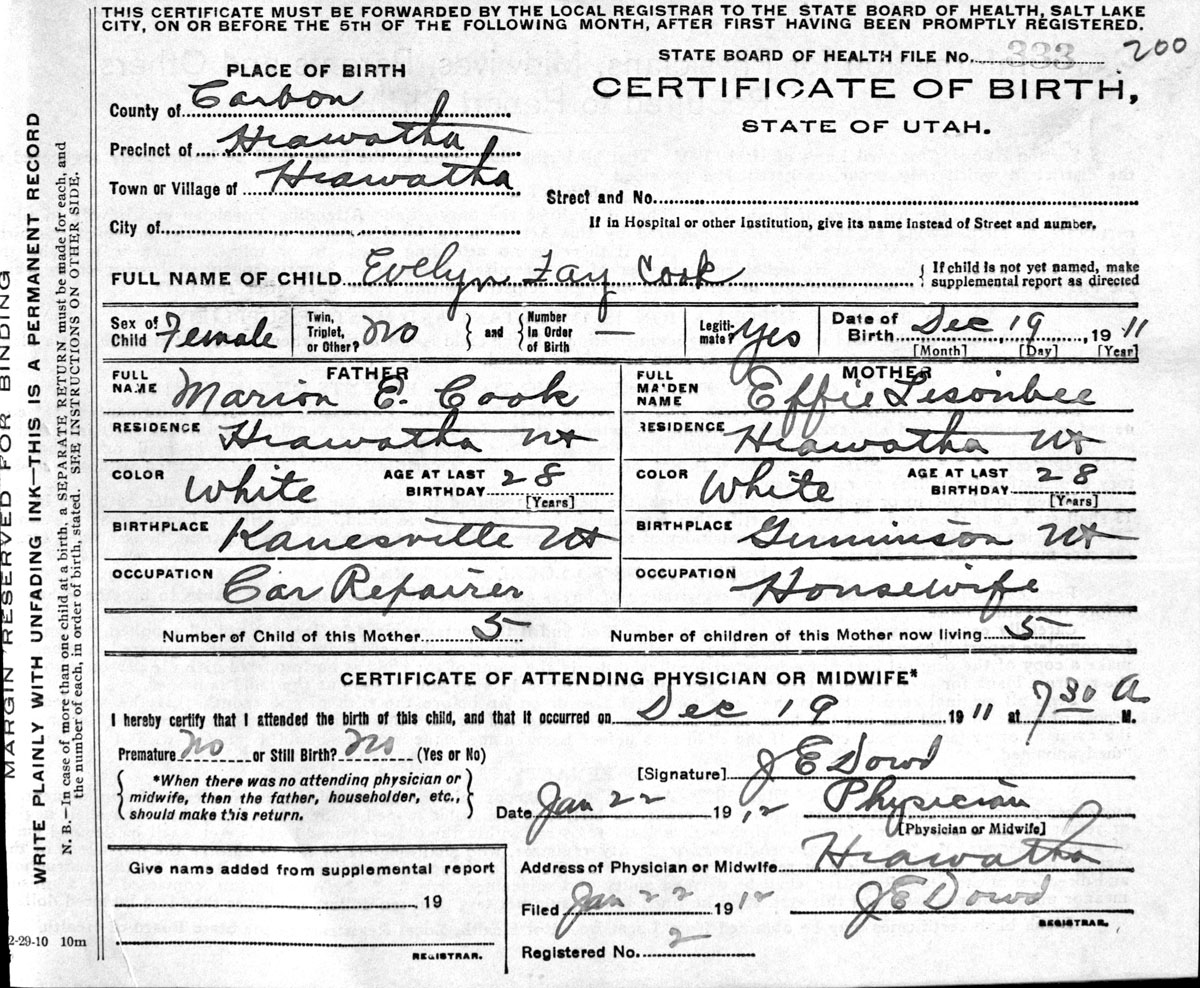 THIS CERTIFICATE MUST BE FORWARDED BY THE LOCAL REGISTRAR TO THE STATE BOARD OF HEALTH, SALT LAKE
CITY, ON OR BEFORE THE 5TH OF THE FOLLOWING MONTH, AFTER FIRST HAVING BEEN PROMPTLY REGISTERED.
STATE BOARD OF HEALTH FILE No. 333 200
PLACE OF BIRTH
CERTIFICATE OF BIRTH,
STATE OF UTAH.
County of Carbon
Precinct of Hiawatha
Town or Village of Hiawatha
Street and No.
City of
If in Hospital or other Institution, give its name instead of Street and number.
FULL NAME OF CHILD Evelyn Fay Cook { If child is not yet named, make supplemental report as directed
Sex of Child Female Twin, Triplet, or Other? No } and { Number in Order of Birth — Legitimate? Yes Date of Birth Dec 19, 1911
[Month] [Day] [Year]
FATHER MOTHER
FULL NAME Marion E. Cook FULL MAIDEN NAME Effie Lisonbee
RESIDENCE Hiawatha Ut RESIDENCE Hiawatha Ut
COLOR White AGE AT LAST BIRTHDAY 28 [Years] COLOR White AGE AT LAST BIRTHDAY 28 [Years]
BIRTHPLACE Kanesville Ut BIRTHPLACE Gunninson Ut
OCCUPATION Car Repairer OCCUPATION Housewife
Number of Child of this Mother 5 Number of children of this Mother now living 5
CERTIFICATE OF ATTENDING PHYSICIAN OR MIDWIFE*
I hereby certify that I attended the birth of this child, and that it occurred on Dec 19 1911 at 7 30 A M.
Premature No or Still Birth? No (Yes or No)
[Signature] J E Dowd
{ *When there was no attending physician or midwife, then the father, householder, etc., should make this return. }
Date Jan 22 1912 Physician
[Physician or Midwife]
Address of Physician or Midwife Hiawatha
Give name added from supplemental report
19
Filed Jan 22 1912 J E Dowd
REGISTRAR.
Registered No. 2
REGISTRAR.
2-29-10 10m
MARGIN RESERVED FOR BINDING
WRITE PLAINLY WITH UNFADING INK—THIS IS A PERMANENT RECORD
N. B.—In case of more than one child at a birth, a SEPARATE RETURN must be made for each, and
the number of each, in order of birth, stated. SEE INSTRUCTIONS ON OTHER SIDE.